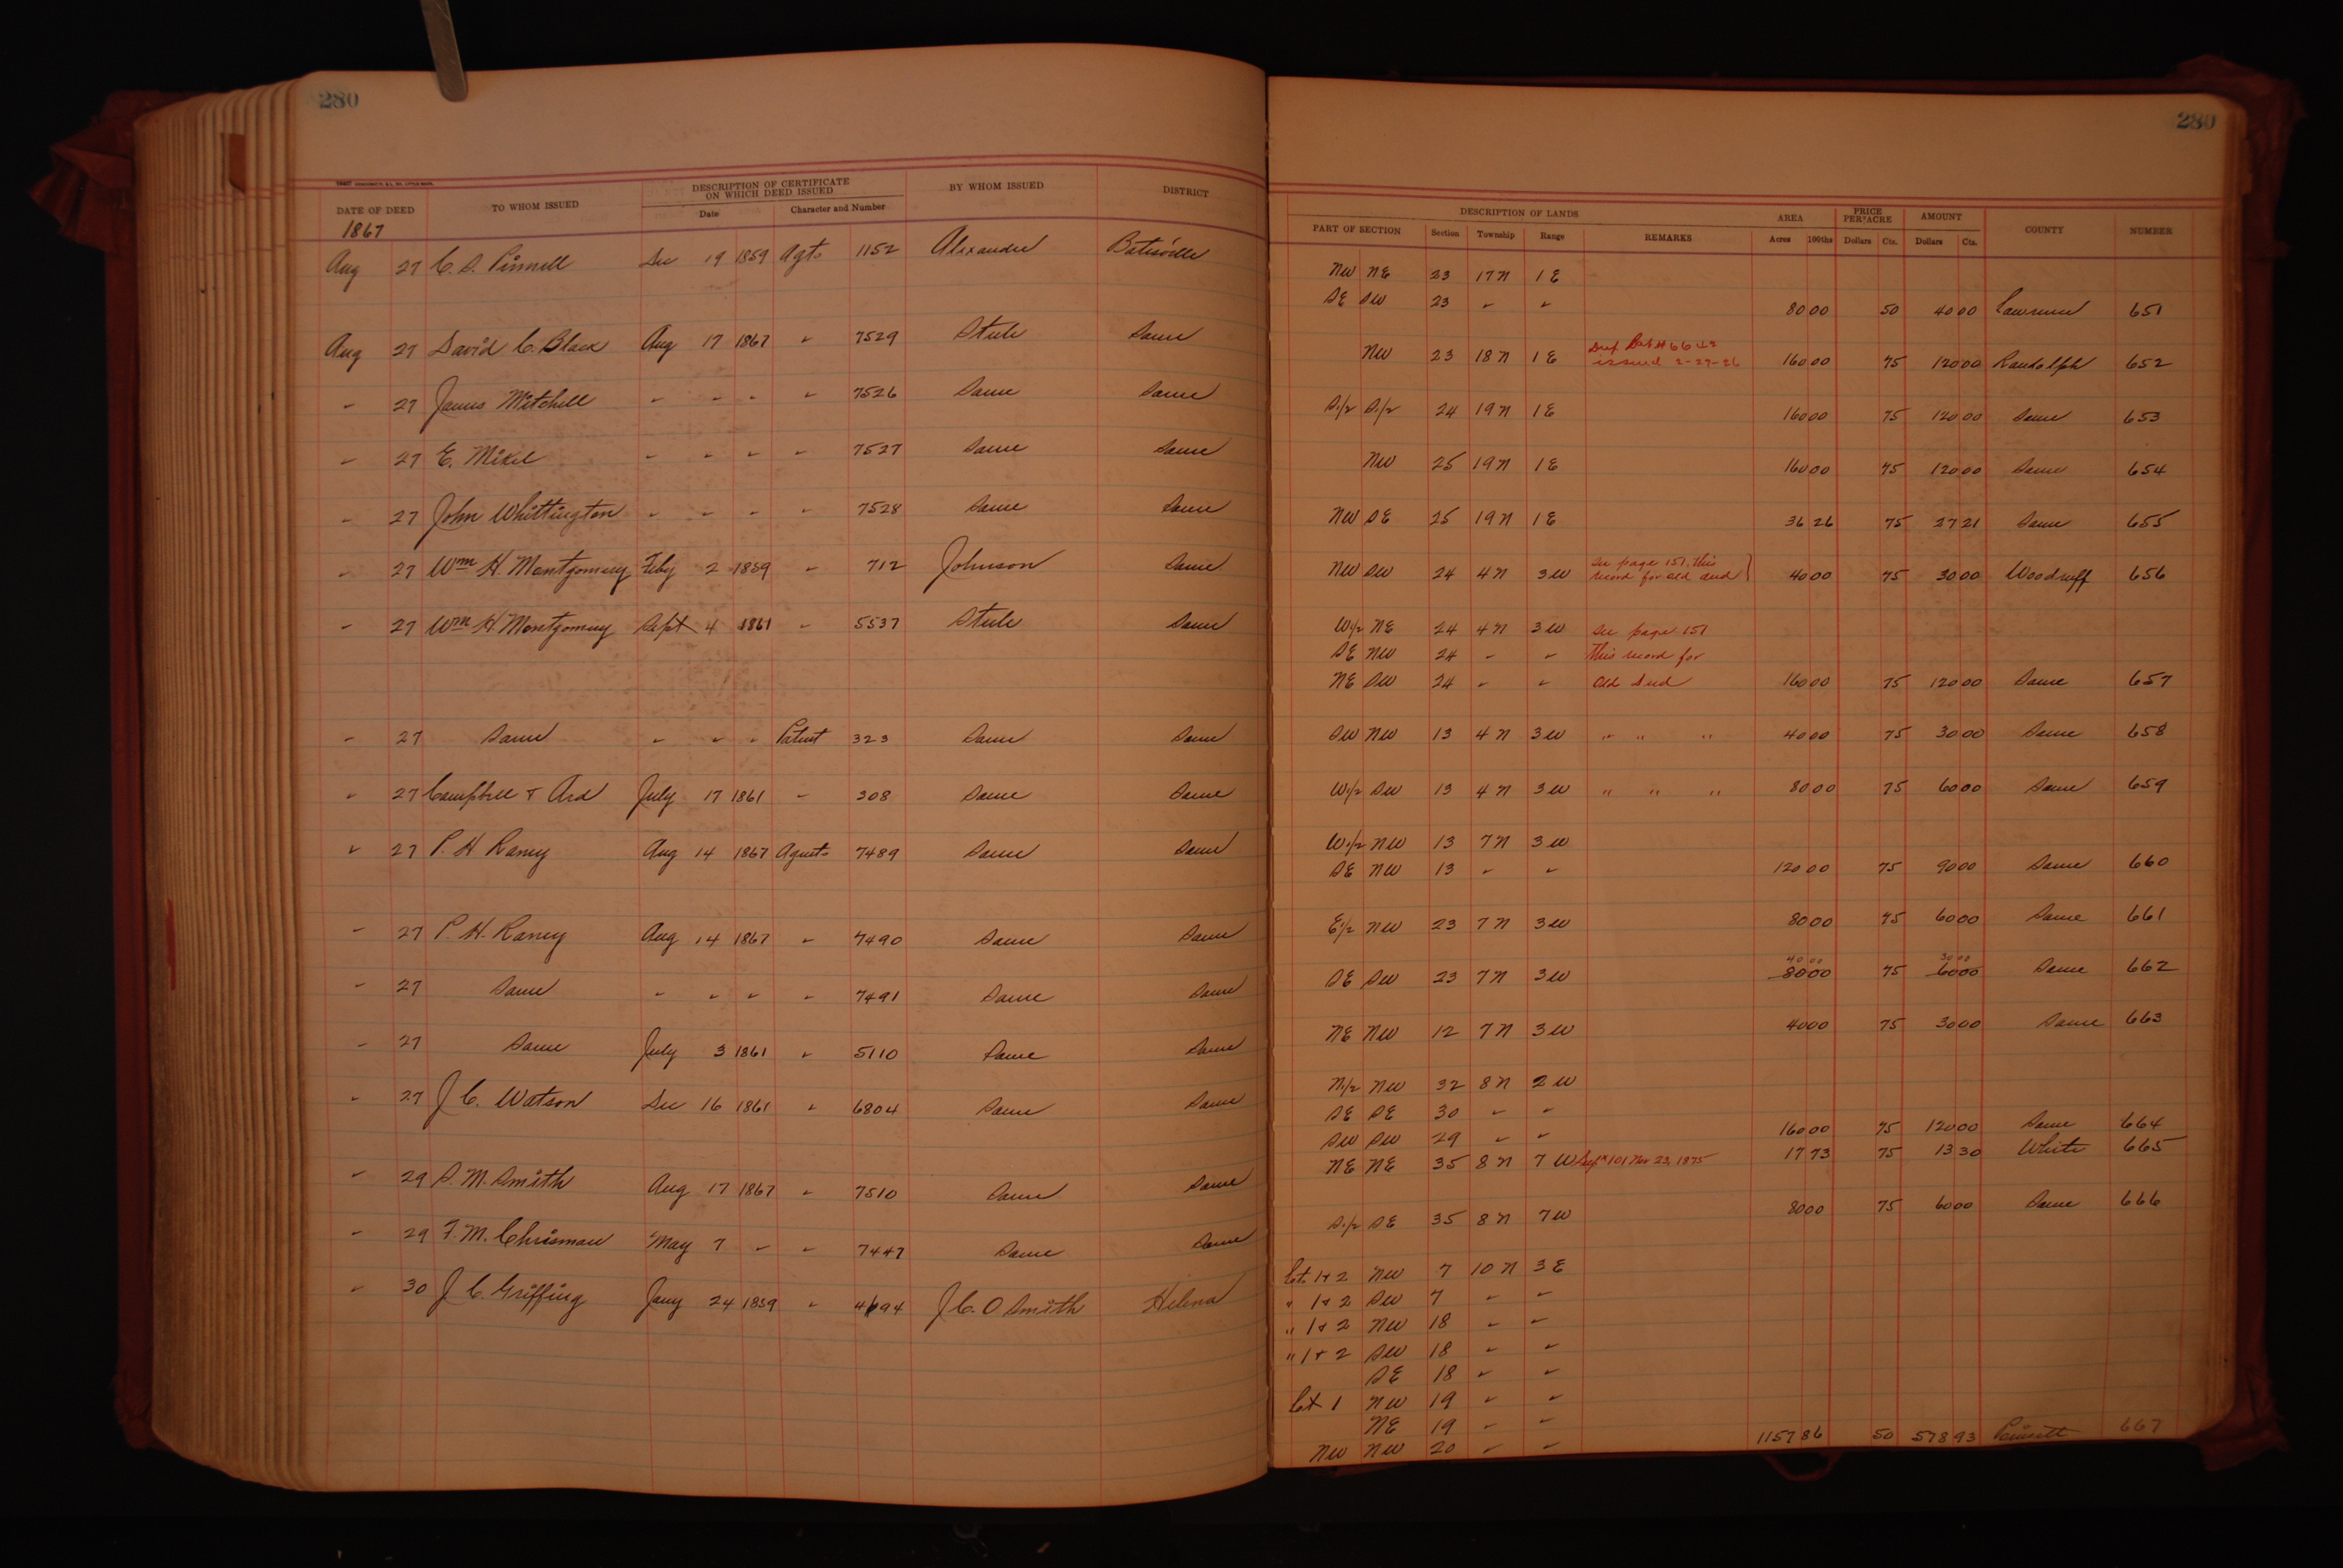 280
DATE OF DEED TO WHOM ISSUED DESCRIPTION OF CERTIFICATE ON WHICH DEED ISSUED BY WHOM ISSUED DISTRICT
Date Character and Number
1867
Aug 27 C. S. Pinnell Dec 19 1859 Agts 1152 Alexander Batesville
Aug 27 David C. Black Aug 17 1867 " 7529 Steele Same
" 27 James Mitchell " " " " 7526 Same Same
" 27 E. Mixel " " " " 7527 Same Same
" 27 John Whittington " " " " 7528 Same Same
" 27 Wm H. Montgomery Feby 2 1859 " 712 Johnson Same
" 27 Wm H Montgomery Sept 4 1861 " 5537 Steele Same
" 27 Same " " " Patent 323 Same Same
" 27 Campbell & Ard July 17 1861 " 308 Same Same
" 27 P. H Raney Aug 14 1867 Agents 7489 Same Same
" 27 P. H. Raney Aug 14 1867 " 7490 Same Same
" 27 Same " " " " 7491 Same Same
" 27 Same July 3 1861 " 5110 Same Same
" 27 J. C. Watson Dec 16 1861 " 6804 Same Same
" 29 S. M. Smith Aug 17 1867 " 7510 Same Same
" 29 F. M. Chrisman May 7 " " 7447 Same Same
" 30 J. C. Griffing Jany 24 1859 " 4694 J. C. O Smith Helena
280
DESCRIPTION OF LANDS AREA PRICE PER ACRE AMOUNT COUNTY NUMBER
PART OF SECTION Section Township Range REMARKS Acres 100ths Dollars Cts. Dollars Cts.
NW NE 23 17 N 1 E
SE SW 23 " " 80 00 50 40 00 Lawrence 651
NW 23 18 N 1 E issued 2-27-26 160 00 75 120 00 Randolph 652
S.1/2 S.1/2 24 19 N 1 E 160 00 75 120 00 Same 653
NW 25 19 N 1 E 160 00 75 120 00 Same 654
NW SE 25 19 N 1 E 36 26 75 27 21 Same 655
NW SW 24 4 N 3 W See page 151, this record for old deed 40 00 75 30 00 Woodruff 656
W.1/2 NE 24 4 N 3 W See page 151
SE NW 24 " " this record for
NE SW 24 " " old deed 160 00 75 120 00 Same 657
SW NW 13 4 N 3 W " " " 40 00 75 30 00 Same 658
W.1/2 SW 13 4 N 3 W " " " 80 00 75 60 00 Same 659
W.1/2 NW 13 7 N 3 W
SE NW 13 " " 120 00 75 90 00 Same 660
E1/2 NW 23 7 N 3 W 80 00 75 60 00 Same 661
40 00 30 00
SE SW 23 7 N 3 W 80 00 75 60 00 Same 662
NE NW 12 7 N 3 W 40 00 75 30 00 Same 663
N.1/2 NW 32 8 N 2 W
SE SE 30 " "
SW SW 29 " " 160 00 75 120 00 Same 664
NE NE 35 8 N 7 W Dup # 101 Nov 23, 1875 17 73 75 13 30 White 665
S.1/2 SE 35 8 N 7 W 80 00 75 60 00 Same 666
Lts 1 & 2 NW 7 10 N 3 E
" 1 & 2 SW 7 " "
" 1 & 2 NW 18 " "
" 1 & 2 SW 18 " "
SE 18 " "
Lot 1 NW 19 " "
NE 19 " "
NW NW 20 " " 1157 86 50 578 93 Poinsett 667